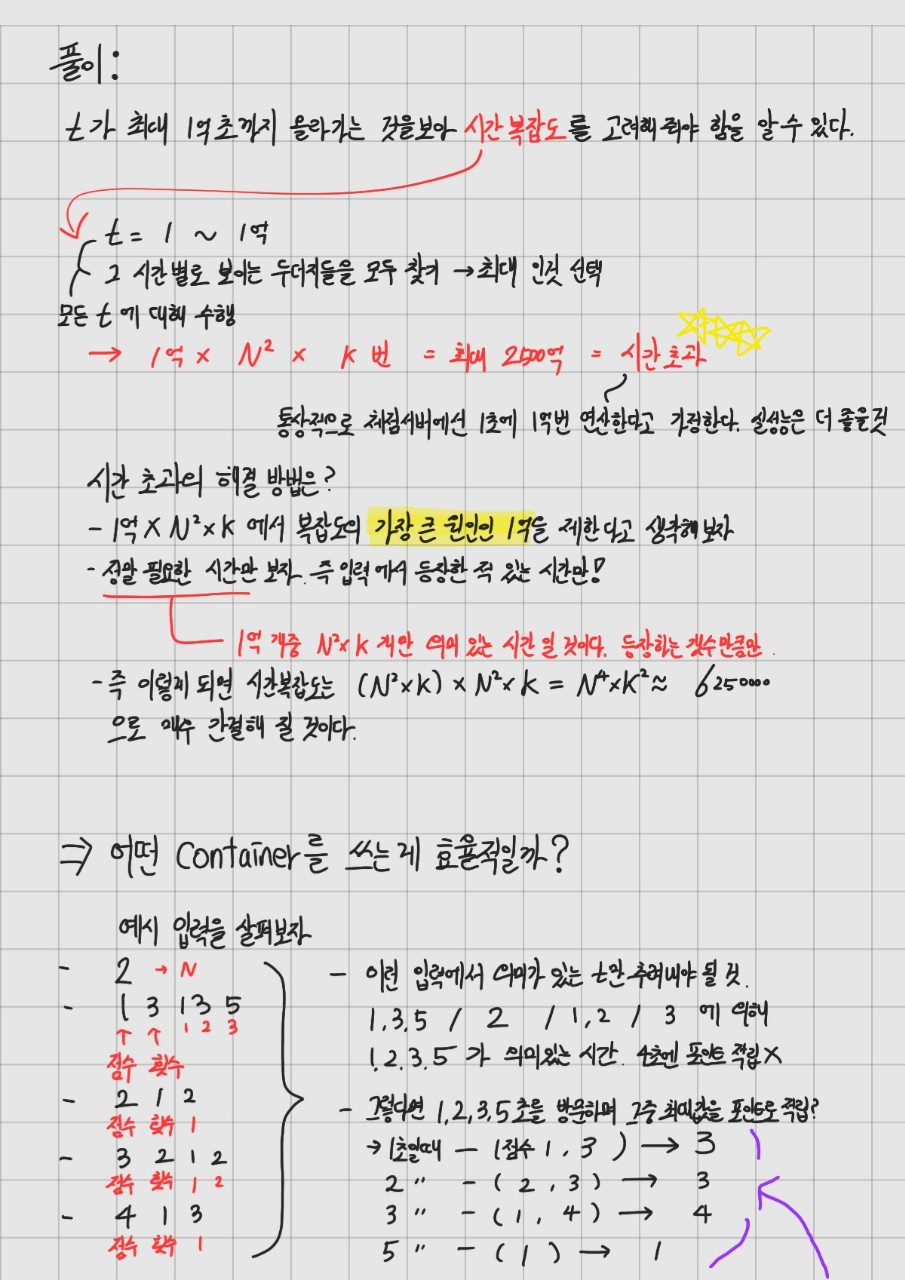 풀이:
t가 최대 1억초까지 올라가는 것을보아 시간복잡도를 고려해줘야 함을 알 수 있다.
t = 1 ~ 1억
그 시간별로 보이는 두더지들을 모두 찾기 → 최대 인것 선택
모든 t에 대해 수행
→ 1억 × N² × K 번 = 최대 2500억 = 시간초과
통상적으로 채점서버에선 1초에 1억번 연산한다고 가정한다. 실성능은 더 좋을것
시간 초과의 해결 방법은?
- 1억 × N² × K 에서 복잡도의 가장 큰 원인인 1억을 제한다고 생각해보자
- 정말 필요한 시간만 보자. 즉 입력에서 등장한 적 있는 시간만!
1억 개중 N²×K 개만 의미 있는 시간 일 것이다. 등장하는 갯수만큼만.
- 즉 이렇게 되면 시간복잡도는 (N²×K) × N²×K = N⁴×K² ≈ 6250000
으로 매우 간결해 질 것이다.
⇒ 어떤 Container를 쓰는게 효율적일까?
예시 입력을 살펴보자
- 2 → N
- 1 3 1 3 5
↑ ↑ 1 2 3
점수 횟수
- 2 1 2
점수 횟수 1
- 3 2 1 2
점수 횟수 1 2
- 4 1 3
점수 횟수 1
- 이런 입력에서 의미가 있는 t만 추려내야 될 것.
1,3,5 / 2 / 1,2 / 3 에 의해
1.2.3.5 가 의미있는 시간. 4초엔 포인트 적립 X
- 그렇다면 1,2,3,5초를 방문하며 그중 최대값을 포인트로 적립?
→ 1초일때 - (점수 1, 3) → 3
2 " - (2, 3) → 3
3 " - (1, 4) → 4
5 " - (1) → 1